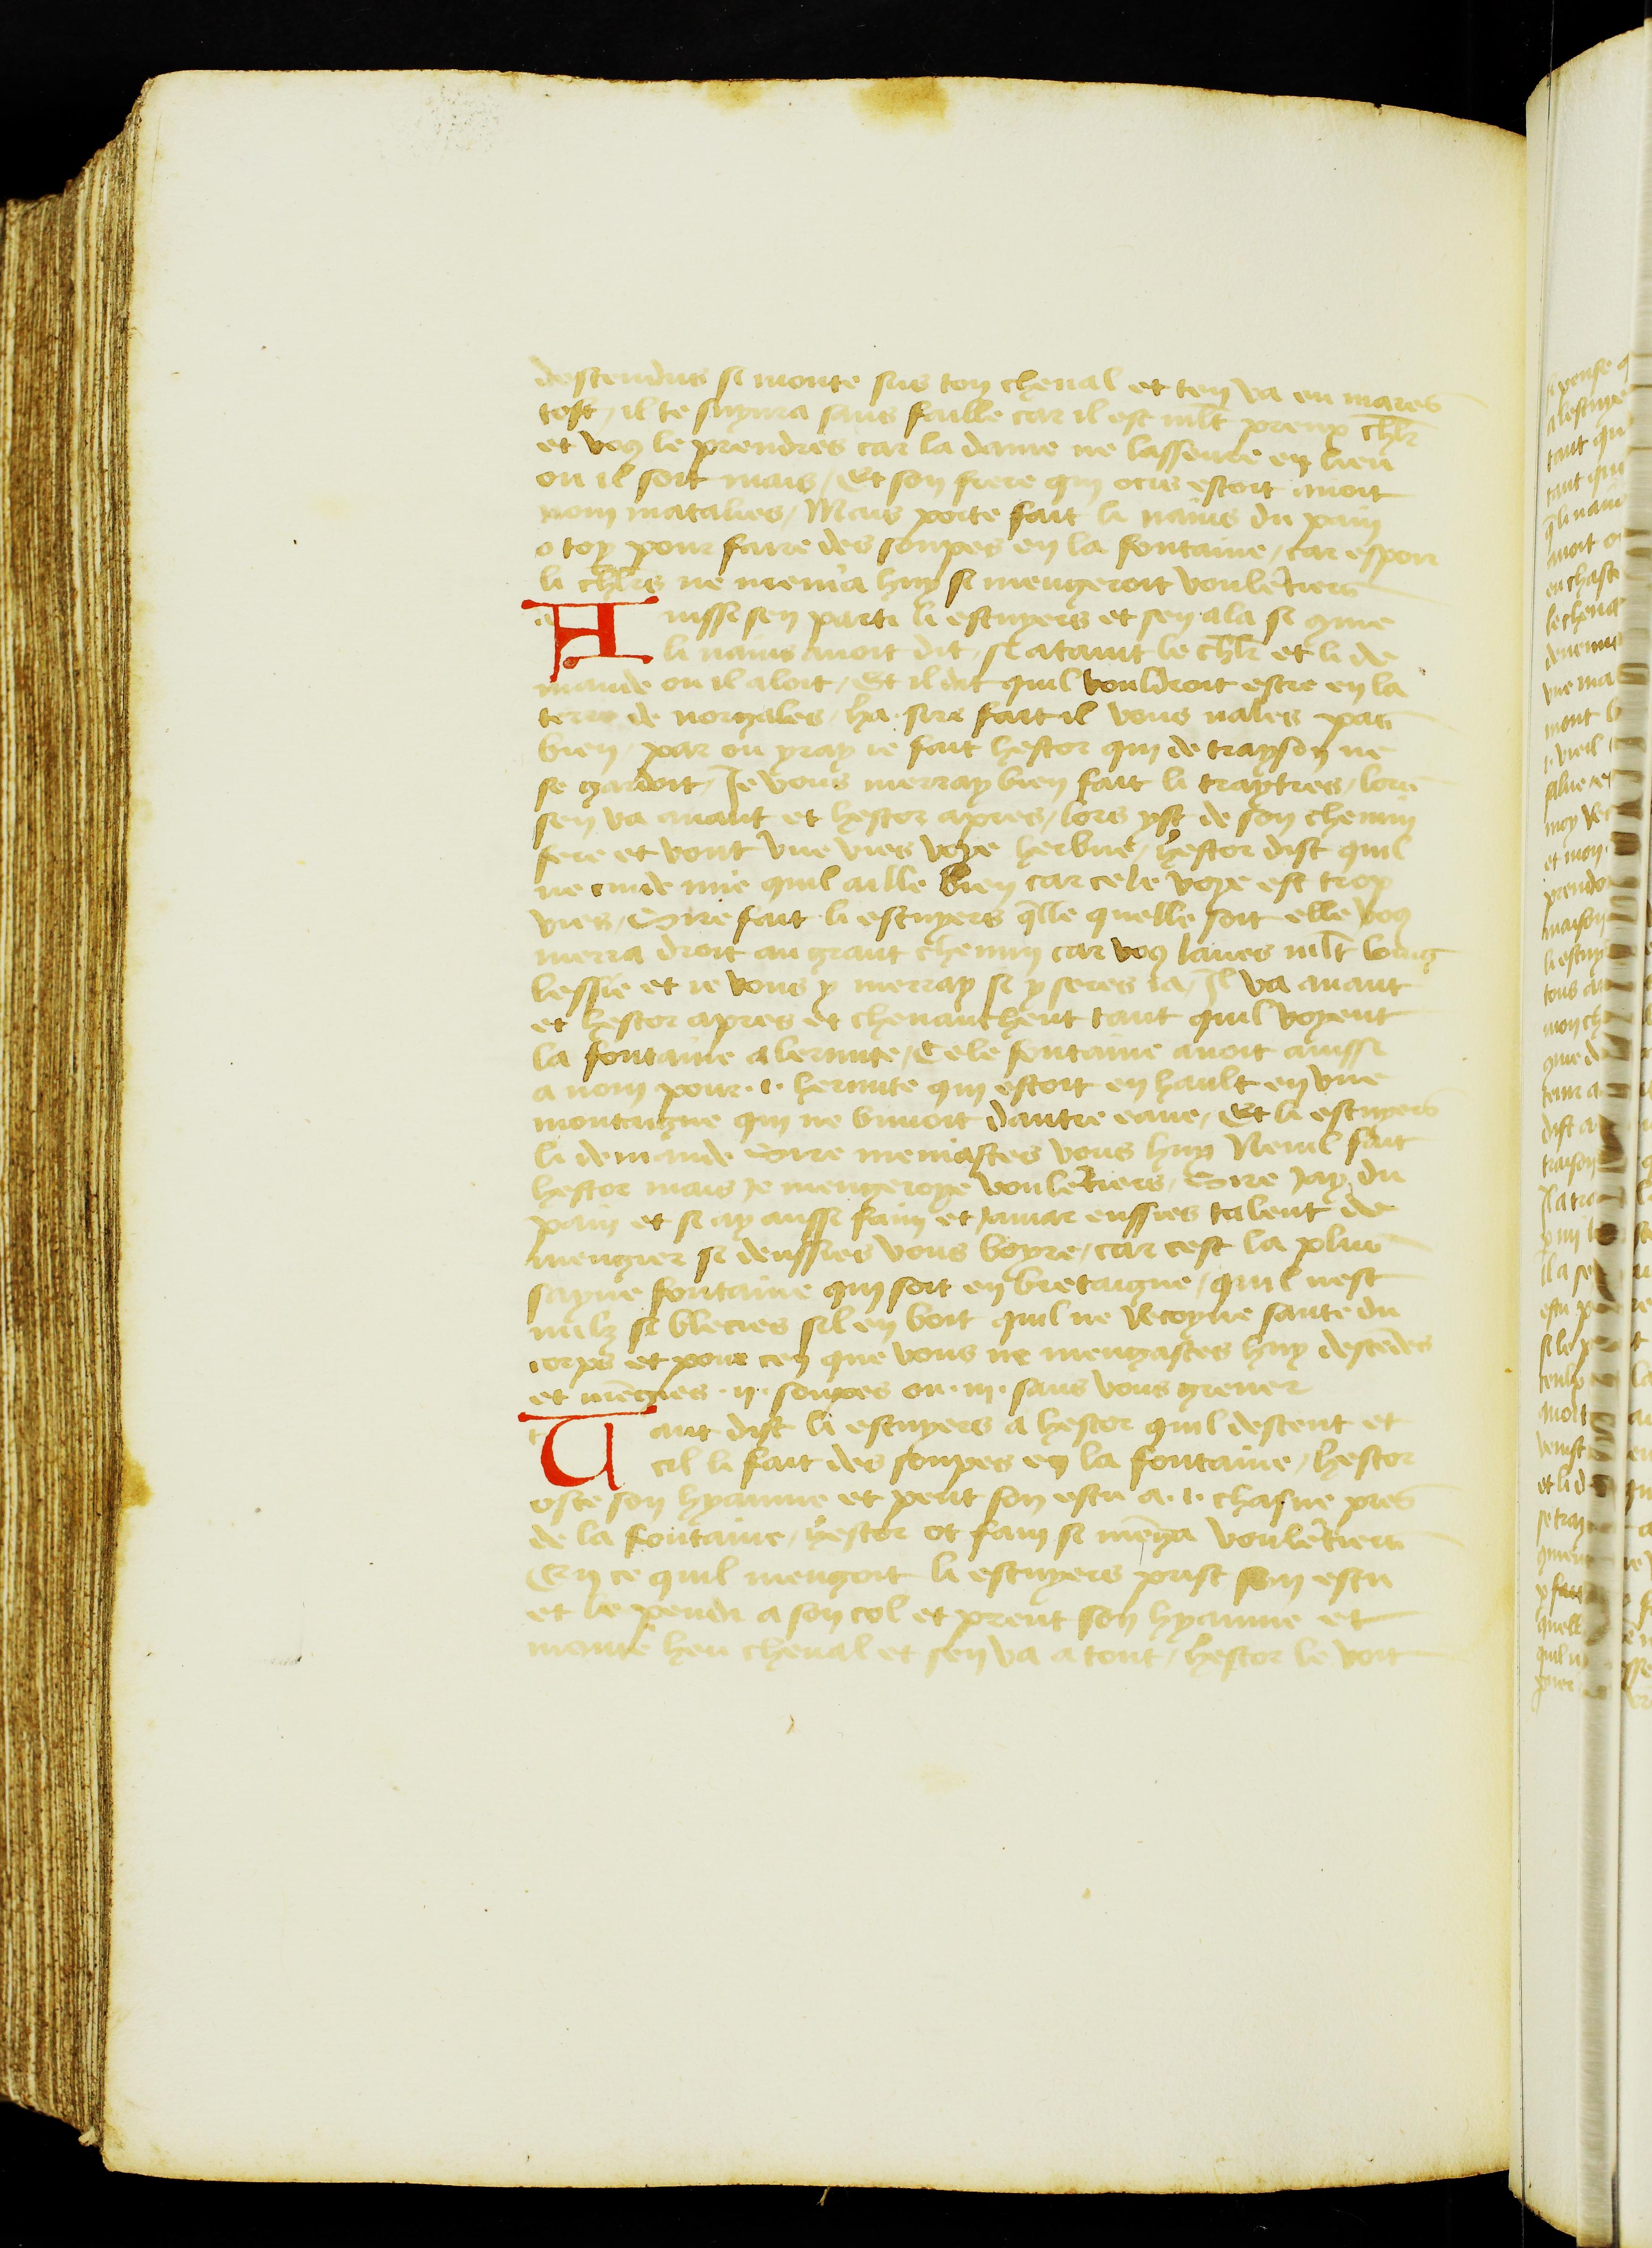 descendus si monte sus ton cheual et ten va eu mares
tost / il te suyura sans faille car il est mlt preux chlr
et vo9 le prendres car la dame ne lasseure en lieu
ou il soit mais / Et son frere qui ocis estoit auoit
nom matalies / Mais porte fait li nains du pain
o toy pour faire des soupes en la fontaine / car espoir
li chlrs ne menia huy si mengeroit voulentiers
Auissi sen parti li escuyers et sen ala si que
li nains auoit dit / si ataint le chlr et li de
mande ou il aloit / Et il dit quil vouldroit estre en la
terre de norgales / ha. sire fait il vous nales pas
bien / par ou yray ie fait hestor qui de trayson ne
se gardoit / Je vous merray bien fait li traytres / lors
sen va auant et hestor apres / lors yst de son chemin
fere et vont vne vies voye herbue / hestor dist quil
ne cuide mie quil aille bien car cele voye est trop
vies / Sire fait li escuyers qlle quelle soit elle vo9
merra droit au grant chemin car vo9 laues mlt loing
lessie et ie vous y merray si y seres ia / Il va auant
et hestor apres et cheuauchent tant quil voyent
la fontaine a lermite / Cele fontaine auoit auissi
a nom pour .i. hermite qui estoit en hault en vne
montaigne qui ne buuoit dautre eaue / Et li escuyers
li demande Sire meniastes vous huy Nenil fait
hestor mais je mengeroye voulentiers / Sire jay du
pain et si ay aussi faim et jamar eussies talent de
mengier si deussies vous boyre / car cest la plus
sayne fontaine qui soit en bretaigne / quil nest
nulz si blecies sil en boit quil ne recoyue sante du
corps et pour cen que vous ne mengastes huy descedes
et megies .ii. soupes ou .iii. sans vous greuer
Tant dist li escuyers a hestor quil descent et
cil li fait des soupes en la fontaine / hestor
oste son hyaume et pent son escu a .i. chasne pres
de la fontaine / hestor ot faim si mega voulentiers
En ce quil mengoit li escuyers prist son escu
et le pendi a son col et prent son hyaume et
monte heu cheual et sen va a tout / hestor le voit